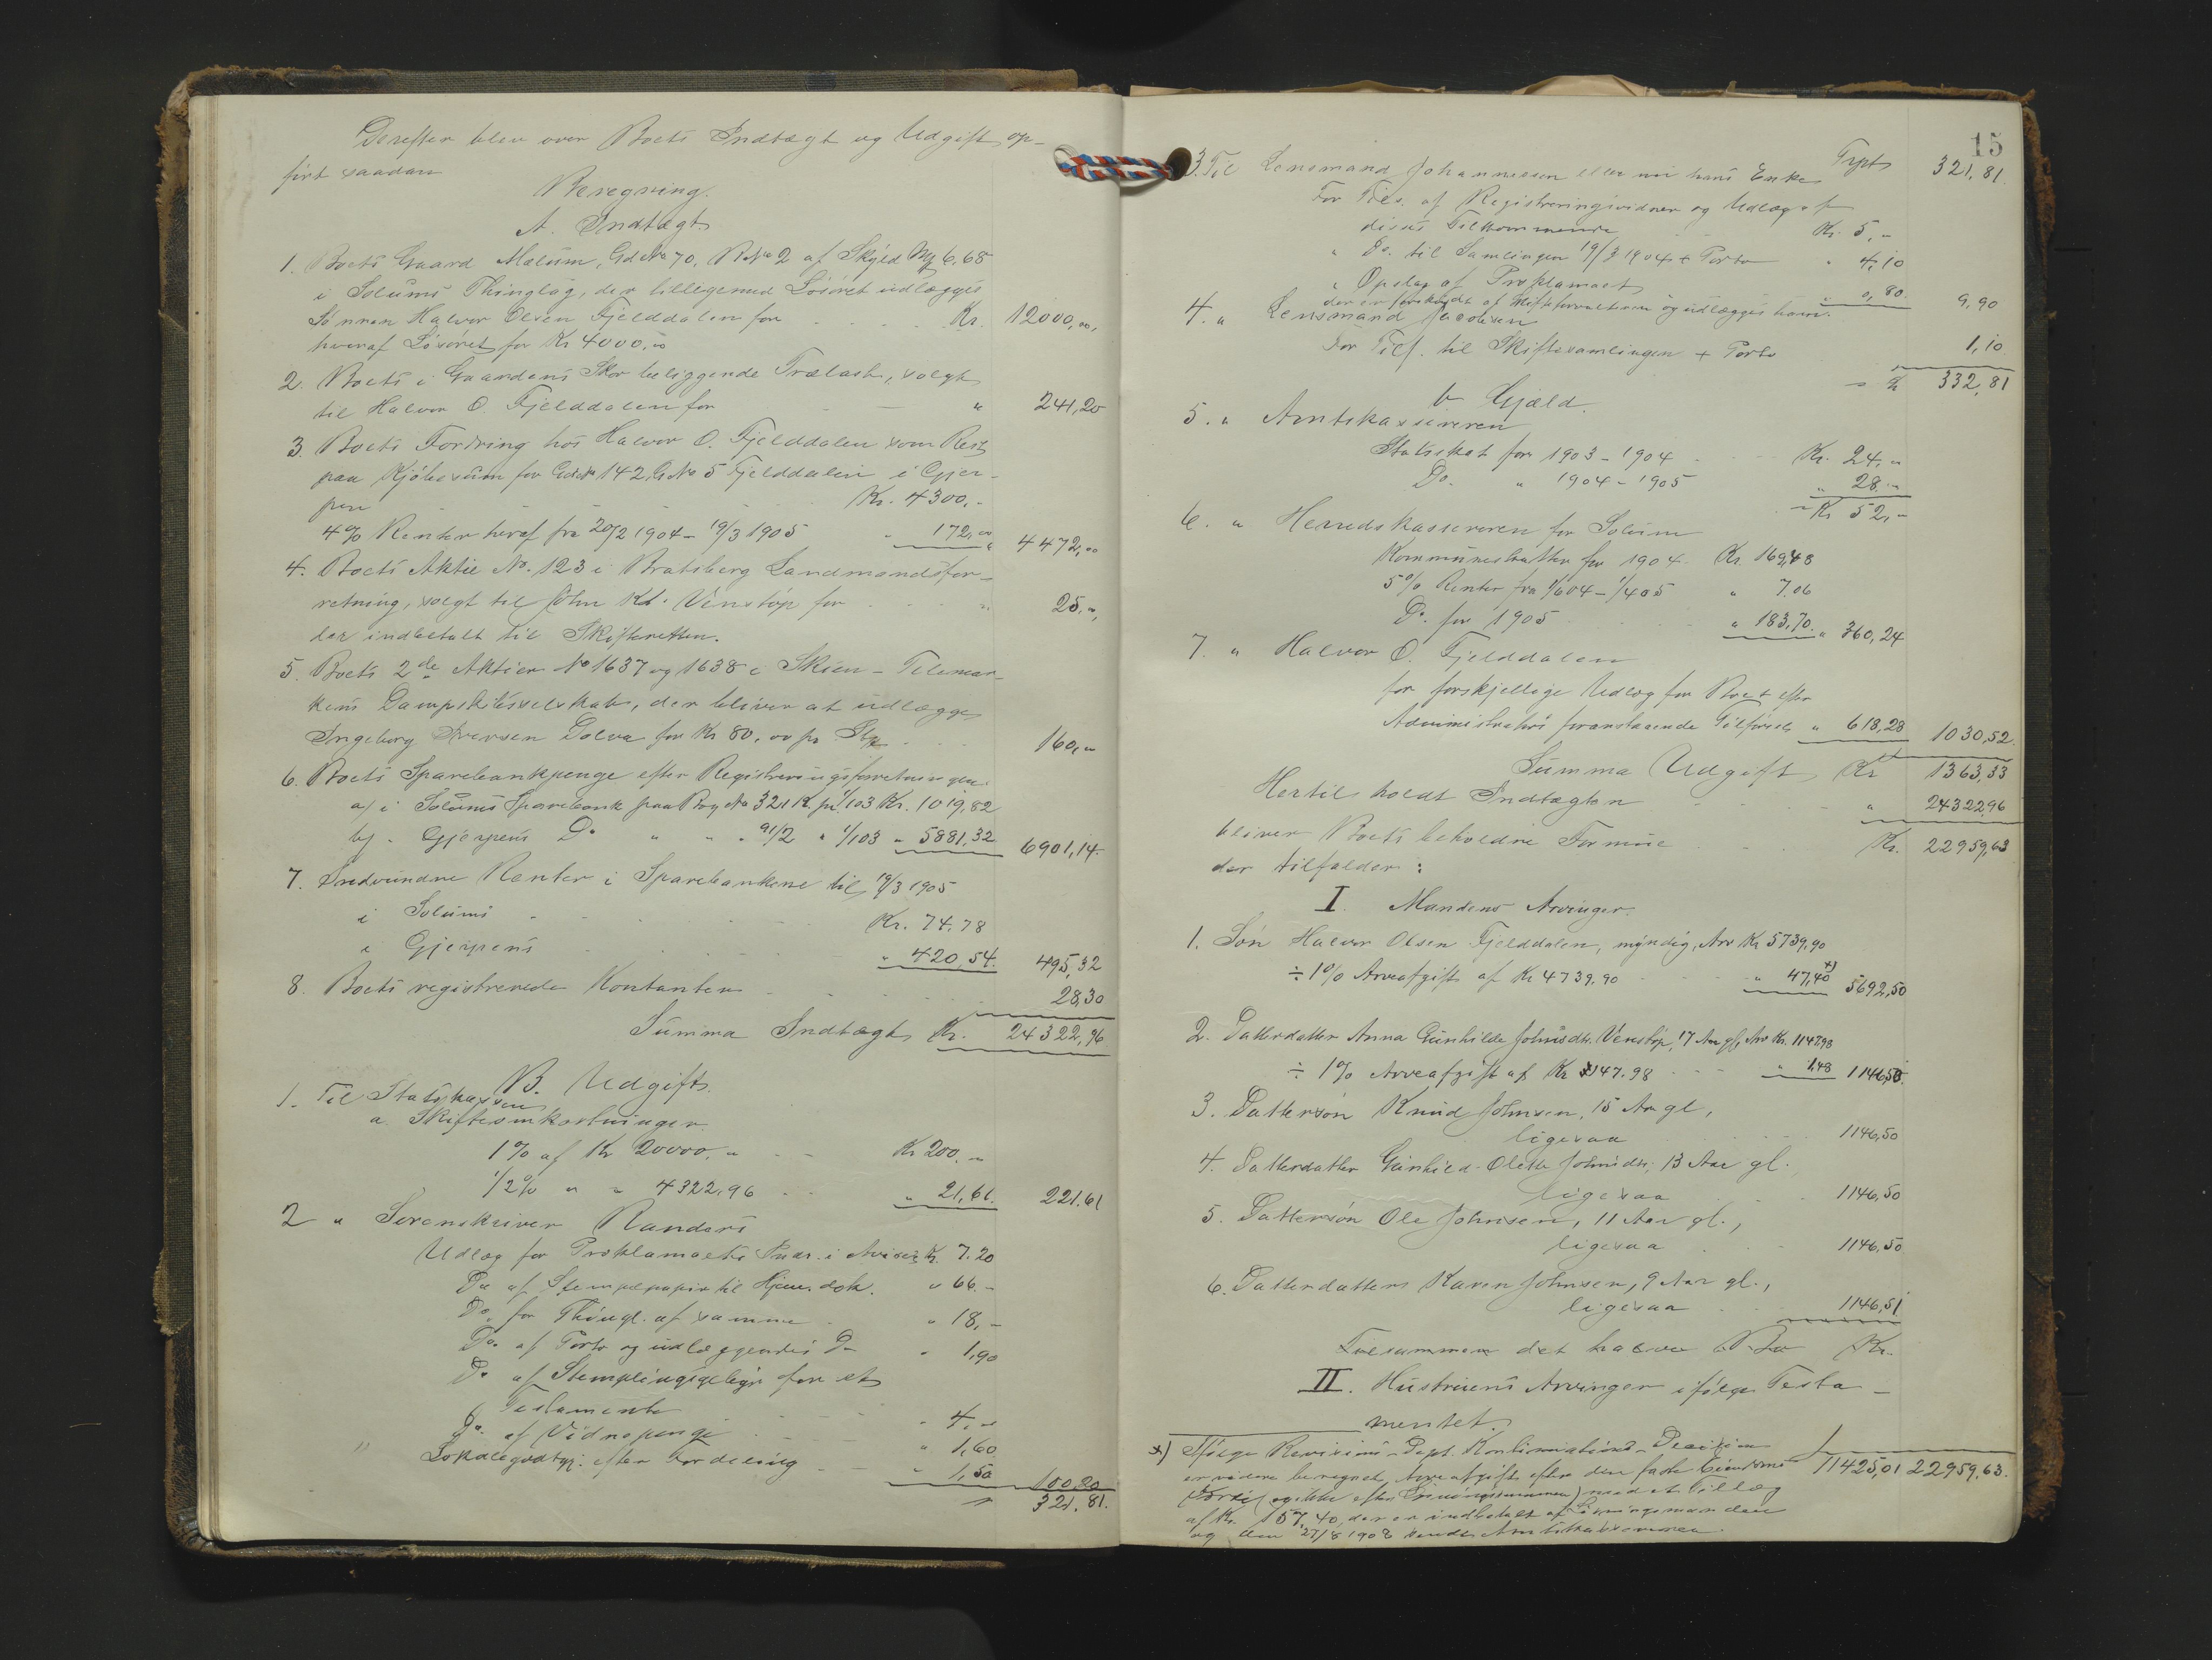 Derefter blev over Boets Indtægt og Udgift op-
ført saadan
Beregning.
A. Indtægt.
1. Boets Gaard Mælum, Gds No 70, B No 2 af Skyld Mk 6,68
i Solums Thinglag, der tillegemed Løsøret udlægges
Sønnen Halvor Olsen Fjelddalen for Kr. 12000,00,
hvoraf Løsøret for Kr 4000.00
2. Boets i Gaardens Skov beliggende Trælast, solgt
til Halvor O. Fjelddalen for " 241,20
3. Boets Fordring hos Halvor O. Fjelddalen som Rest
paa Kjøbesum for Gds No 142, B No 5 Fjelddalen i Gjer-
pen Kr. 4300,-
4% Renter heraf fra 20/2 1904 - 19/3 1905 " 172,00 " 4472,00
4. Boets Aktie No. 123 i Bratsberg Landmandsfor-
retning, solgt til John Kd. Venstøp for " 25,"
der indbetalt til Skifteretten.
5. Boets 2de Aktier No 1637 og 1638 i Skien - Telemar-
kens Dampskibsselskab, der bliver at udlægge
Ingeborg Iversen Dolva for Kr 80,00 pr. Stk 160,"
6. Boets Sparebankpenge efter Registreringsforretningen:
a/ i Solums Sparebank paa Bog No 321 K. pr. 1/1 03 Kr. 1019,82
b/ - Gjerpens Do " " " 91/2 " 1/1 03 " 5881,32 6901,14.
7. Indvundne Renter i Sparebankene til 19/3 1905
i Solums Kr. 74,78
i Gjerpens " 420,54. 495,32
8. Boets registrerede Kontanter 28,30
Summa Indtægt Kr. 24322,96
B. Udgift.
1. Til Statskassen
a. Skiftesomkostninger.
1% af Kr 20000," Kr 200,"
1/2% " " 4322,96 " 21,61. 221.61
2 " Sorenskriver Randers
Udlæg for Proklamaets Indr. i Aviser Kr. 7.20
Do af Stempelpapir til Hjem. dok. " 66.-
Do. for Thingl. af samme " 18,-
Do. af Porto og udlæggendes Do " 1,90
Do af Stemplingsgebyr for et
Testamente " 4,"
Do. af Vidnepenge " 1,60
" Lokalegodtgj. efter Fordeling " 1,50 100,20
" 321.81.
15
Trpt 321,81.
3. Til Lensmand Johannessen eller nu hans Enke
For Tils. af Registreringsvidner og Udlæg af
disses Tilkommende Kr. 5,-
" Do. til Samlingen 19/3 1904 + Porto " 4,10
" Opslag af Proklamaet " 0,80. 9,90
der er forskudt af Skifteforvalteren og udlægges ham.
4. " Lensmand Jacobsen
For Tils. til Skiftesamlingen + Porto 1,10
332,81
b. Gjæld.
5. " Amtskassereren
Statsskat for 1903 - 1904 Kr. 24,"
Do. " 1904 - 1905 " 28."
Kr 52,-
6. " Herredskassereren for Solum
Kommuneskatter for 1904 Kr. 169,48
5% Renter fra 1/6 04 - 1/4 05 " 7.06
Do. for 1905 " 183,70. " 360,24
7. " Halvor O. Fjelddalen
for forskjellige Udlæg for Boet efter
Administrators foranstaaende Tilførsel " 618,28 1030,52.
Summa Udgift Kr 1363,33
Hertil holdt Indtægten " 24322,96
bliver Boets beholdne Formue Kr. 22959,63
der tilfalder:
I. Mandens Arvinger.
1. Søn Halvor Olsen Fjelddalen, myndig, Arv Kr 5739,90
÷ 1% Arveafgift af Kr 4739,90 " 47,40 x) 5692,50
2. Datterdatter Anna Gunhilde Johnsdtr. Venstøp, 17 Aar gl, Arv Kr. 1147,98
÷ 1% Arveafgift af Kr 147.98 " 1,48 1146,50.
3. Dattersøn Knud Johnsen, 15 Aar gl,
ligesaa 1146,50
4. Datterdatter Gunhild Olette Johnsdtr, 13 Aar gl.
ligesaa 1146,50
5. Dattersøn Ole Johnsen, 11 Aar gl.,
ligesaa 1146,50
6. Datterdatter Karen Johnsen, 9 Aar gl.,
ligesaa 1146,51
Tilsammen det halve Bo Kr.
II. Hustruens Arvinger ifølge Testa-
mentet.
11425,01 22959,63.
x) Ifølge Revisions-Dept. Decision
er videre beregnet Arveafgift efter den faste Eiendoms
(og ikke efter ) med et Tillæg
af Kr. 157,40, der er indbetalt af
og den 27/8 1908 sendt Amtskassereren.